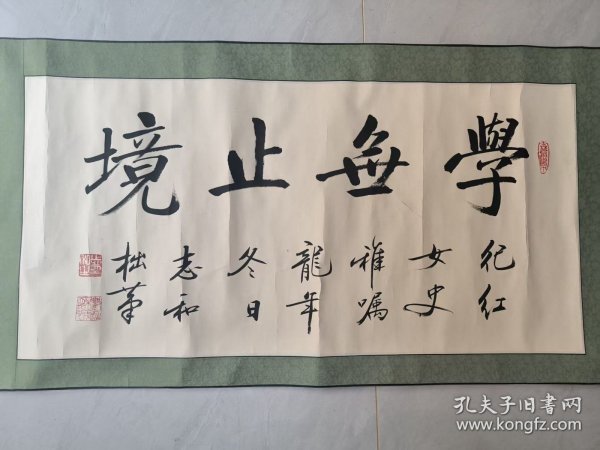 學無止境
纪红
女史
雅嘱
龍年
冬日
志和
拙筆
孔夫子旧书网
www.kongfz.com